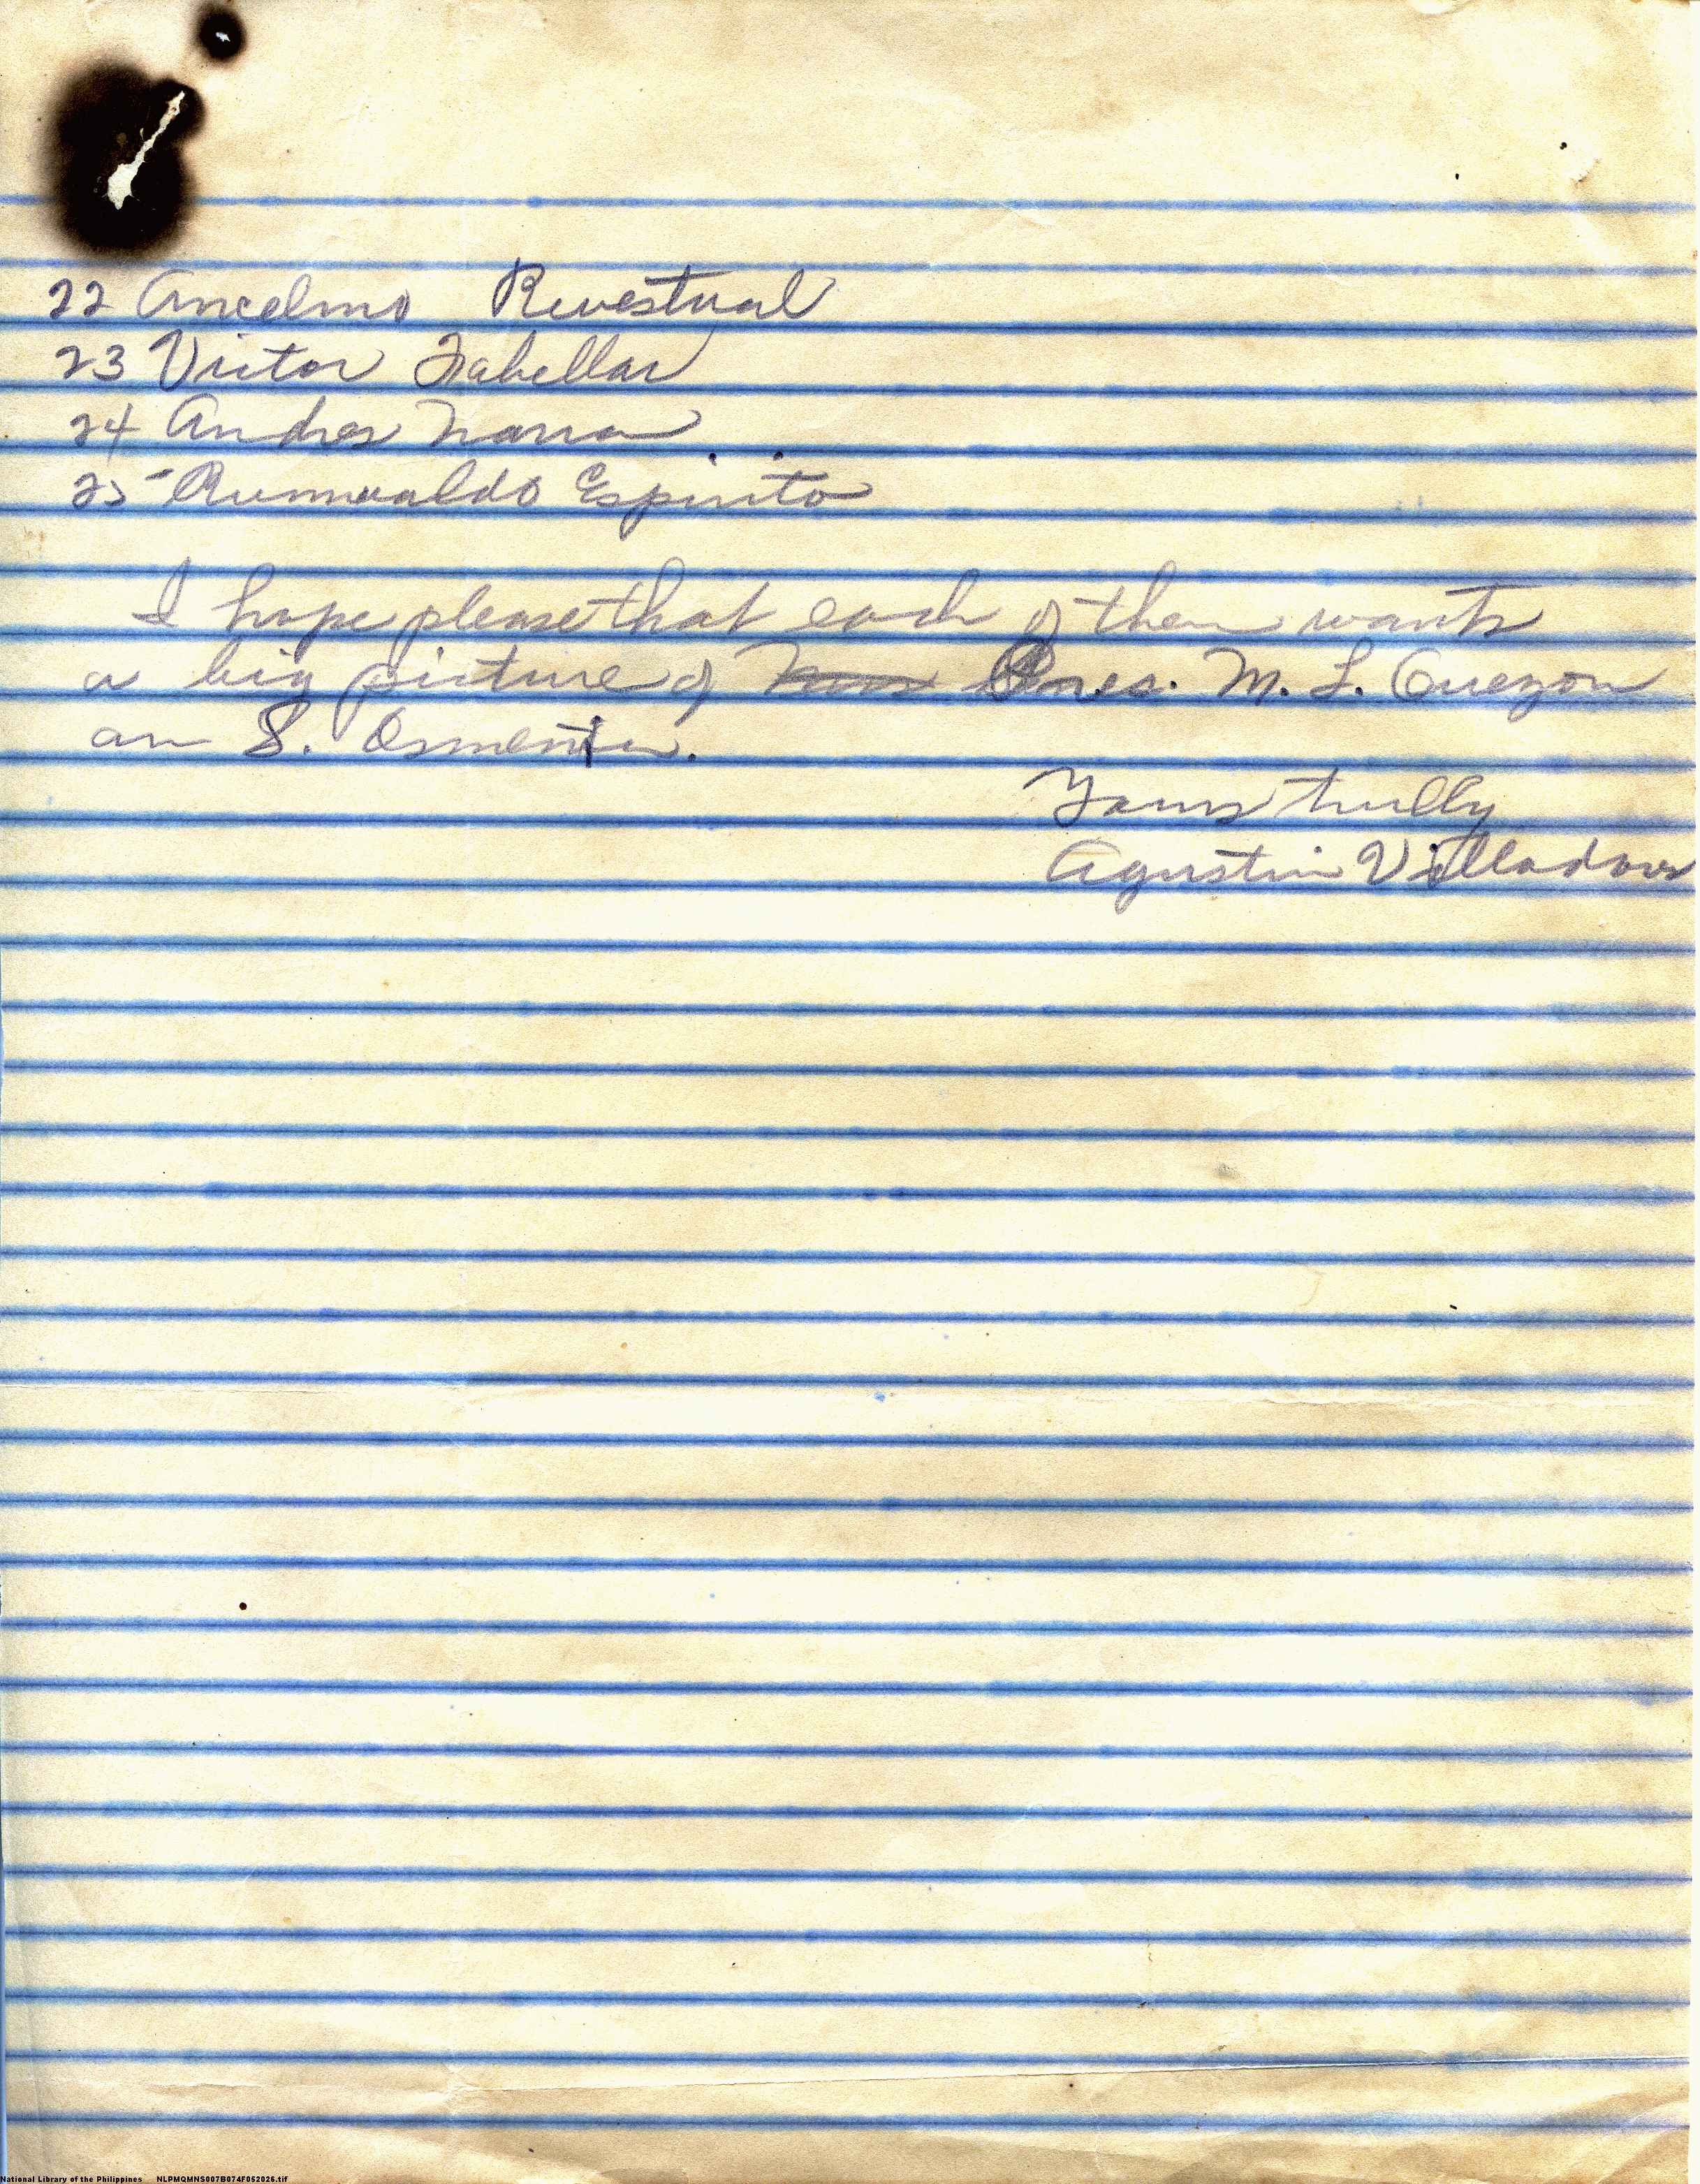 22 Ancelmo Rivestual
23 Victor Fabellar
24 Andres
25 Rumualdo Espirito
I hope please that each of them wants
a big picture of Pres. M. L. Quezon
an S. Osmenia.
Yours trully
Agustin Villadores
National Library of the Philippines NLPMQMNS007B074F052026.tif